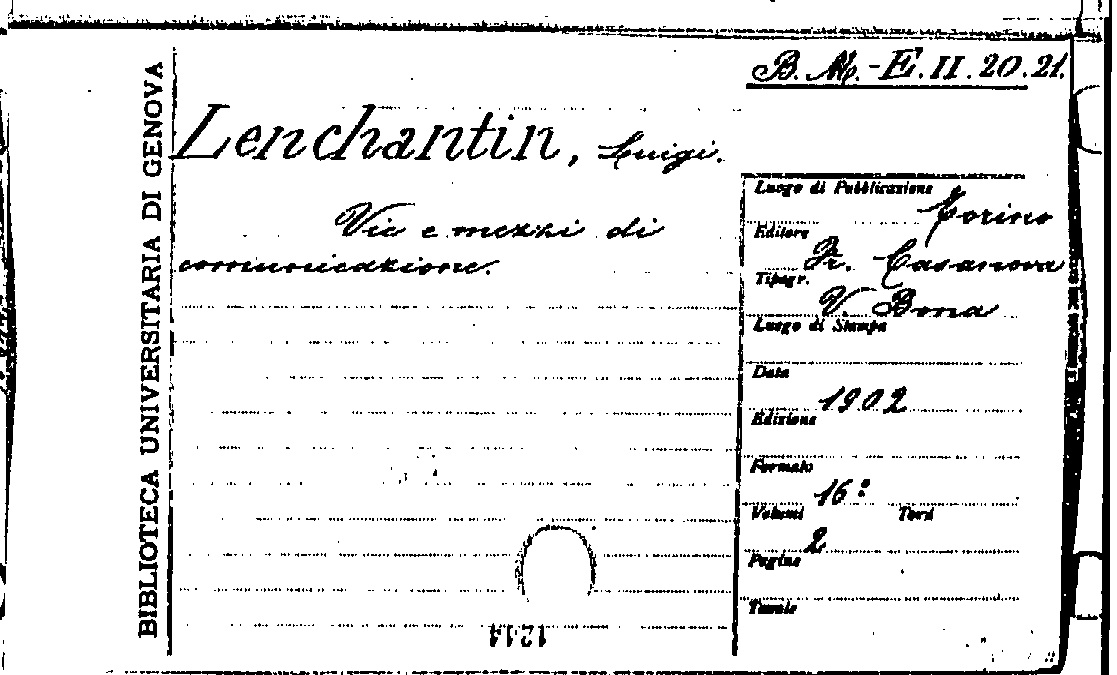 B. M. - E. II. 20. 21.
BIBLIOTECA UNIVERSITARIA DI GENOVA
Lenchantin, Luigi.
Vie e mezzi di
comunicazione.
Luogo di Pubblicazione
Torino
Editore
Fr. Casanova
Tipogr.
V. Bona
Luogo di Stampa
Data
1902
Edizione
Formato
16º
Volumi Tomi
2
Pagine
Tavole